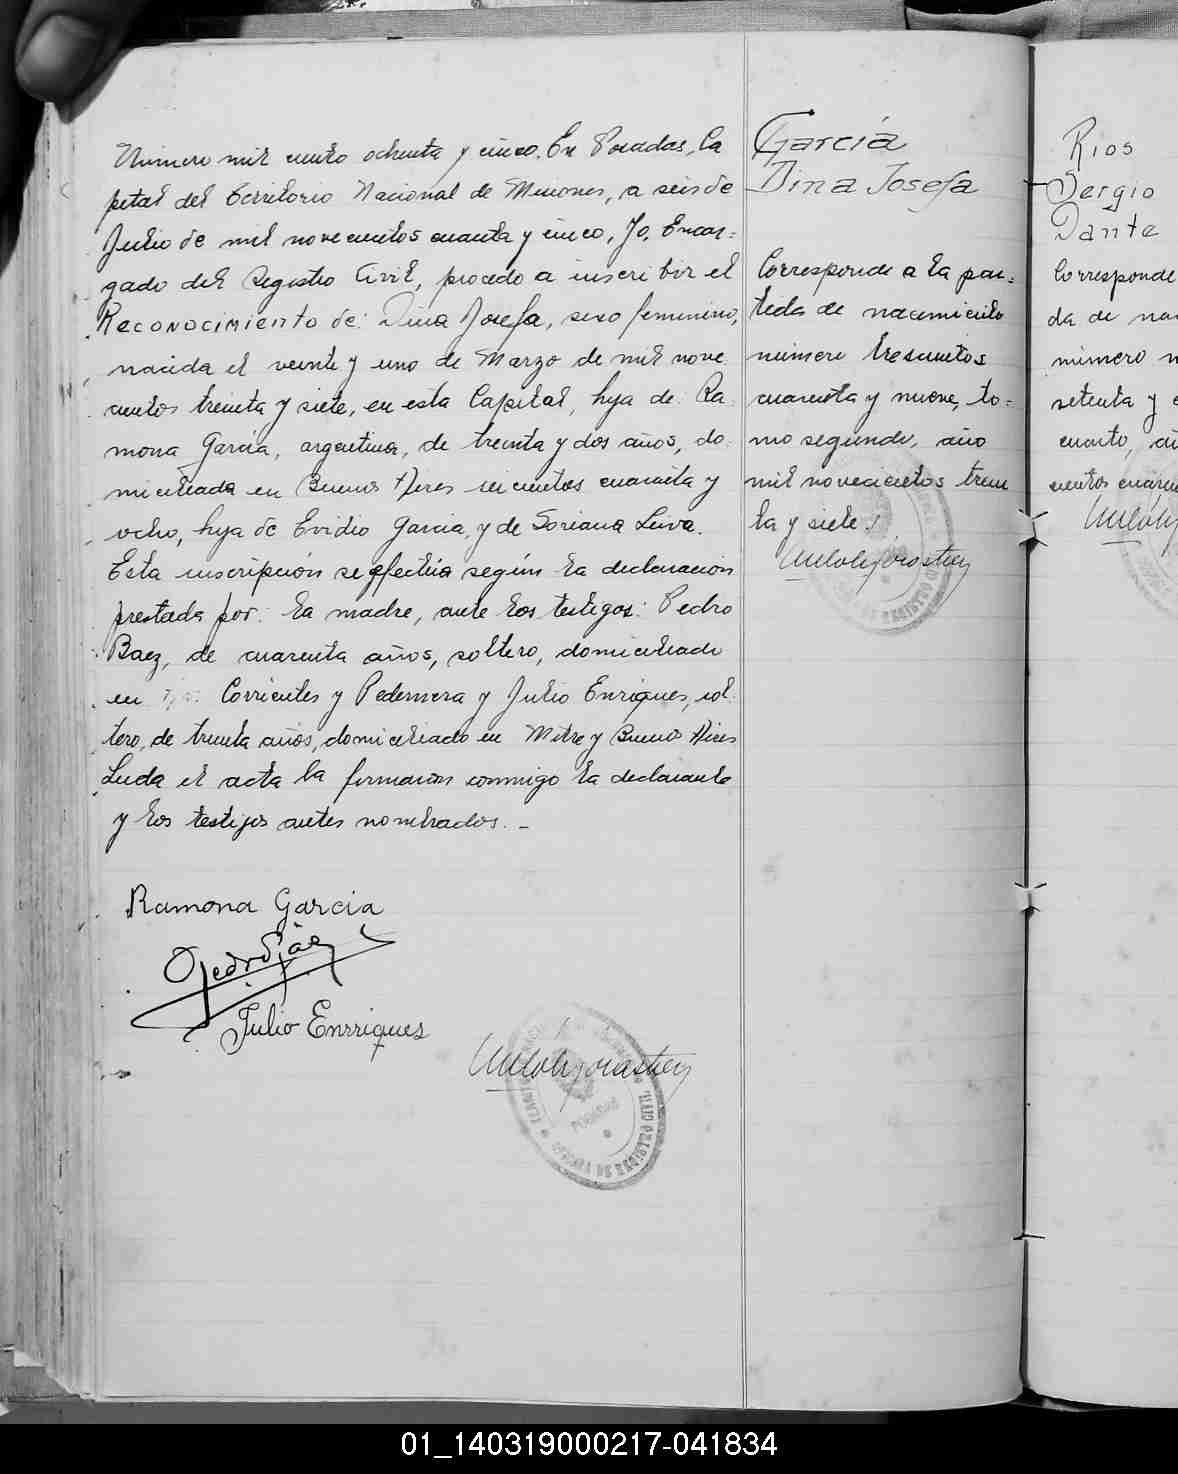 Número mil ciento ochenta y cinco. En Posadas, Ca
pital del Territorio Nacional de Misiones, a seis de
Julio de mil novecientos cuarenta y cinco, Yo, Encar=
gado del Registro Civil, procedo a inscribir el
Reconocimiento de: Dina Josefa, sexo femenino,
nacida el veinte y uno de Marzo de mil nove
cientos treinta y siete, en esta Capital, hija de: Ra
mona García, argentina, de treinta y dos años, do
miciliada en Buenos Aires seicientos cuarenta y
ocho, hija de Evidio Garcia, y de Soriana Leiva.
Esta inscripción se efectúa según la declaración
prestada por: la madre, ante los testigos: Pedro
Baez, de cuarenta años, soltero, domiciliado
en Corrientes y Pedernera y Julio Enriques, sol
tero, de treinta años, domiciliado en Mitre y Buenos Aires
Leída el acta la firmaron conmigo la declarante
y los testigos antes nombrados. _
Ramona Garcia
Pedro Báez
Julio Enrriques
POSADAS
DE REGISTRO CIVIL
García
Dina Josefa
Corresponde a la par=
tida de nacimiento
número trescientos
cuarenta y nueve, to=
mo segundo, año
mil novecientos trein
ta y siete.
DE REGISTRO
Rios
Sergio
Dante
Corresponde
da de na
número
setenta y
cuarto,
cientos
01_140319000217-041834